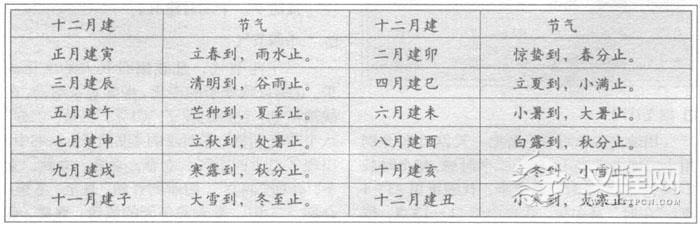 十二月建 节气 十二月建 节气
正月建寅 立春到，雨水止。 二月建卯 惊蛰到，春分止。
三月建辰 清明到，谷雨止。 四月建巳 立夏到，小满止。
五月建午 芒种到，夏至止。 六月建未 小暑到，大暑止。
七月建申 立秋到，处暑止。 八月建酉 白露到，秋分止。
九月建戌 寒露到，秋分止。 十月建亥 立冬到，小雪
十一月建子 大雪到，冬至止。 十二月建丑 小寒到，大寒止。